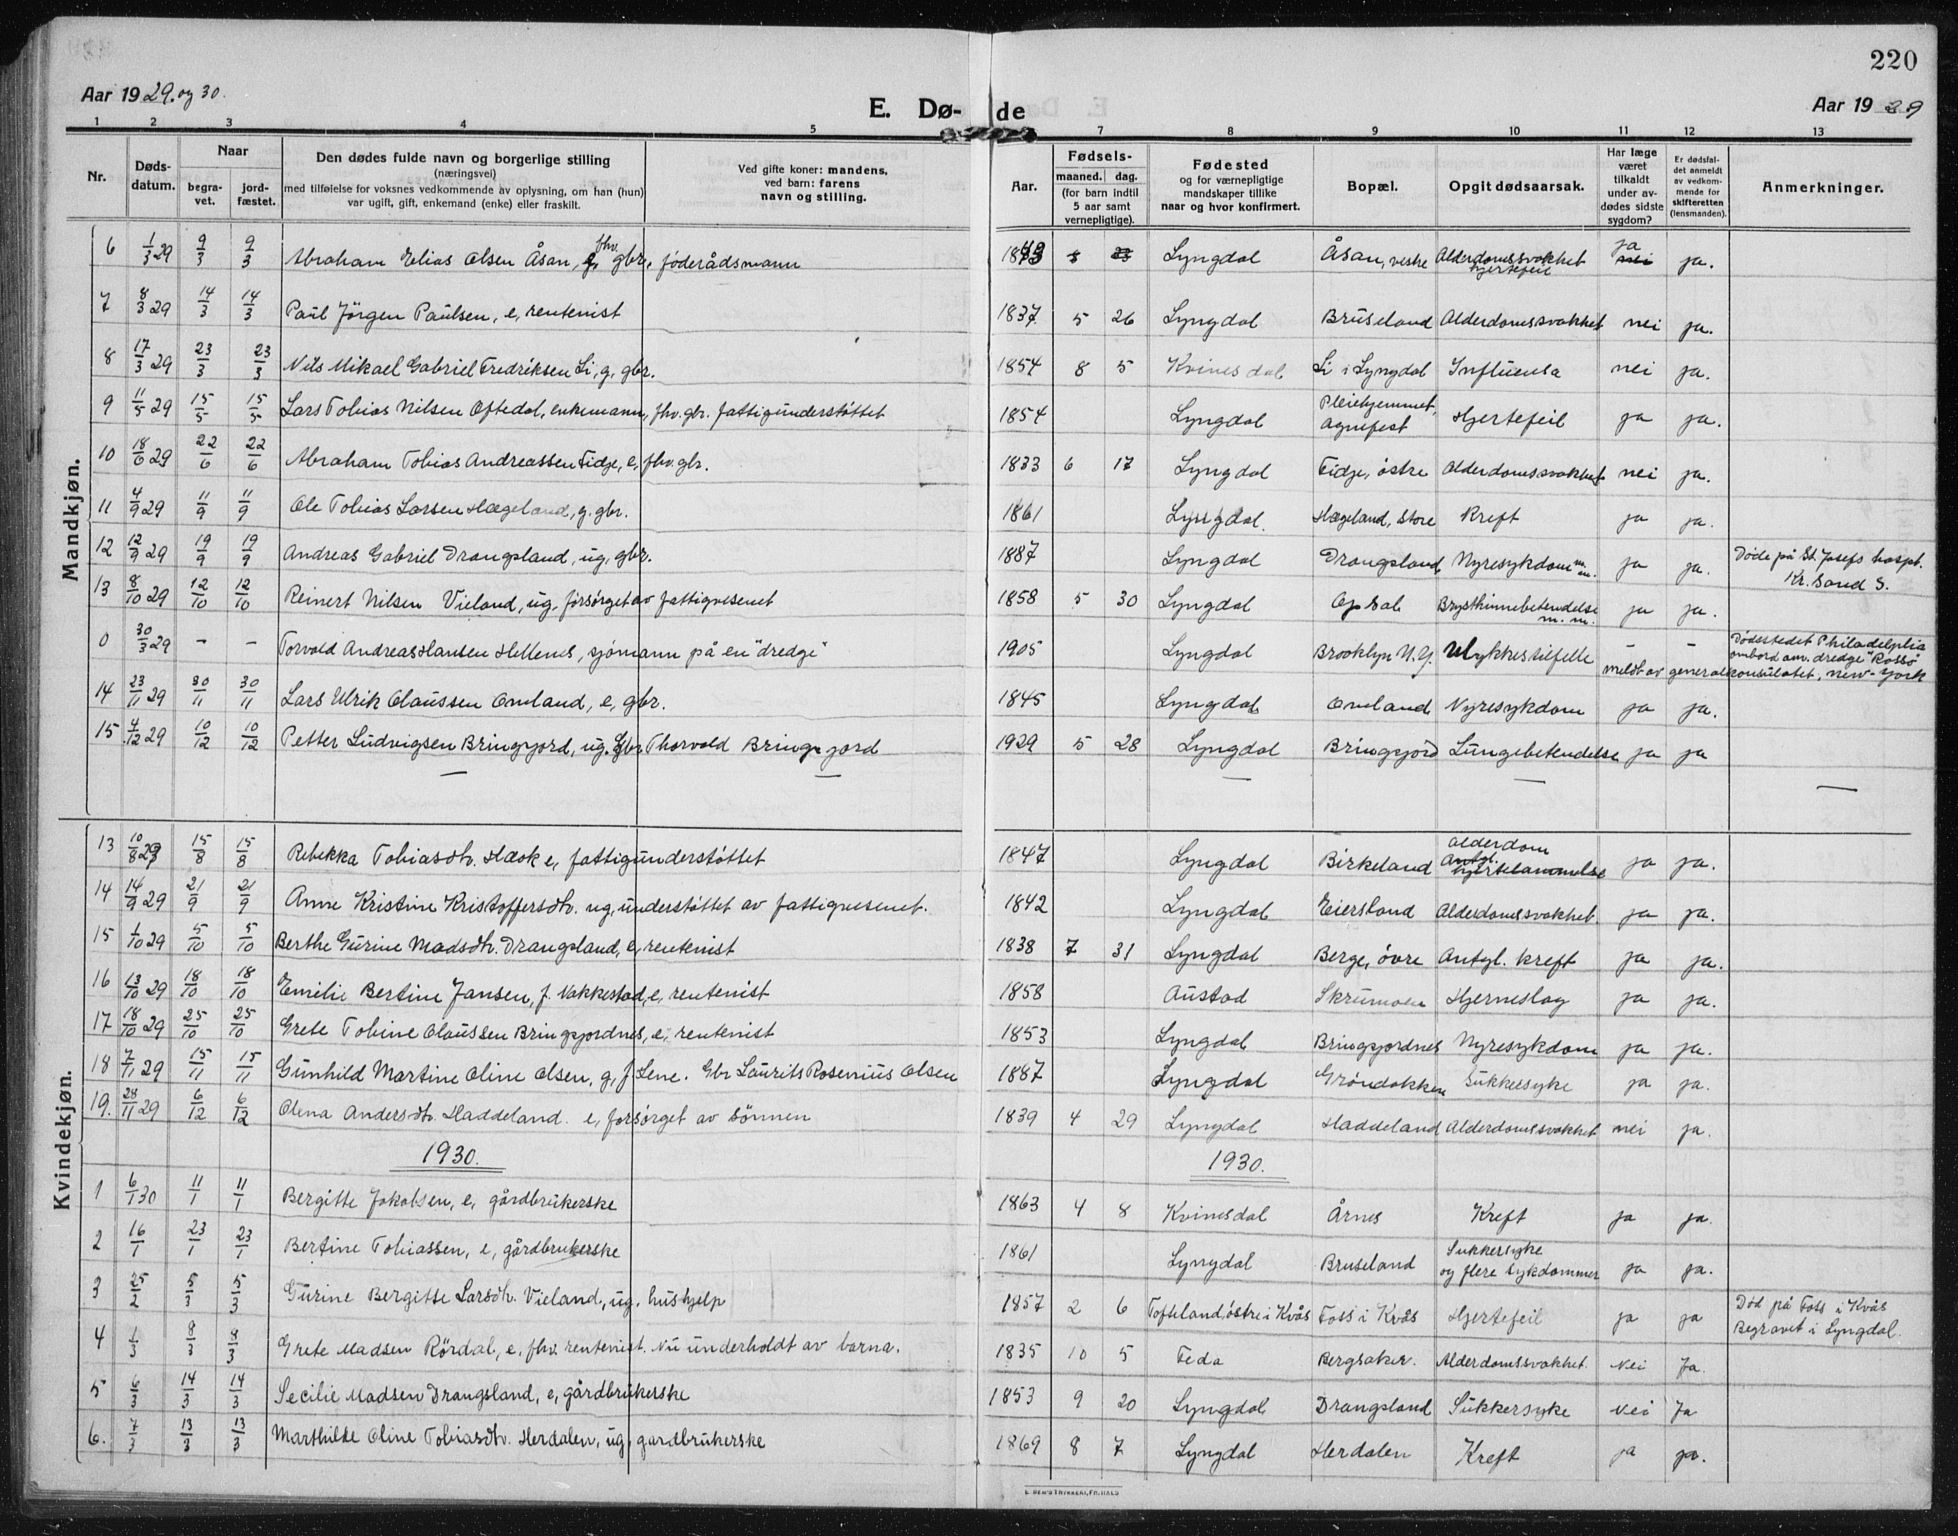 220
Aar 1929. og 30.
E. Dø- de
Aar 1929
1 2 3 4 5 7 8 9 10 11 12 13
Nr.
Døds-
datum.
Naar
begra-
vet.
jord-
fæstet.
Den dødes fulde navn og borgerlige stilling
(næringsvei)
med tilføielse for voksnes vedkommende av oplysning, om han (hun)
var ugift, gift, enkemand (enke) eller fraskilt.
Ved gifte koner: mandens,
ved barn: farens
navn og stilling.
Aar.
Fødsels-
maaned. dag.
(for barn indtil
5 aar samt
vernepligtige).
Fødested
og for værnepligtige
mandskaper tillike
naar og hvor konfirmert.
Bopæl.
Opgit dødsaarsak.
Har læge
været
tilkaldt
under av-
dødes sidste
sygdom?
Er dødsfal-
det anmeldt
av vedkom-
mende for
skifteretten
(lensmanden).
Anmerkninger.
Mandkjøn.
6 1/3 29 9/3 9/3 Abraham Elias Olsen Åsan, g, fhv. gbr. føderådsmann 1843 8 23 Lyngdal Åsan, vestre Alderdomssvakhet hjertefeil ja nei ja.
7 8/3 29 14/3 14/3 Paul Jörgen Paulsen, e, rentenist 1837 5 26 Lyngdal Bruseland Alderdomssvakhet nei ja.
8 17/3 29 23/3 23/3 Nils Mikael Gabriel Fredriksen Li, g, gbr. 1854 8 5 Kvinesdal Li i Lyngdal Influensa nei ja.
9 11/5 29 15/5 15/5 Lars Tobias Nilsen Oftedal, enkemann, fhv. gbr. fattigunderstøttet 1854 Lyngdal Pleiehjemmet, Agnefest Hjertefeil ja ja.
10 18/6 29 22/6 22/6 Abraham Tobias Andreassen Fidje, e, fhv. gbr. 1833 6 17 Lyngdal Fidje, østre Alderdomssvakhet nei ja.
11 4/9 29 11/9 11/9 Ole Tobias Larsen Hægeland, g. gbr. 1861 Lyngdal. Hægeland, Store Kreft ja ja.
12 12/9 29 19/9 19/9 Andreas Gabriel Drangsland, ug, gbr. 1887 Lyngdal Drangsland Nyresykdom m. m. ja ja. Døde på St. Josefs hospt. Kr. Sand S.
13 8/10 29 12/10 12/10 Reinert Nilsen Vieland, ug, forsørget av fattigvesenet 1858 5 30 Lyngdal Opsal Brysthinnebetendelse m. m. ja ja.
0 30/3 29 - - Torvald Andreas Hansen Hellenes, sjømann på en "dredge" 1905 Lyngdal Brooklyn N.Y. Ulykkestilfelle - - Dødsstedet Philadelphia ombord am. dredge "Rossö" meldt av generalkonsulatet, New-York
14 23/11 29 30/11 30/11 Lars Ulrik Olaussen Omland, e, gbr. 1845 Lyngdal Omland Nyresykdom ja ja.
15 4/12 29 10/12 10/12 Petter Ludvigsen Bringsjord, ug. Gbr Thorvald Bringsjord 1929 5 28 Lyngdal Bringsjord Lungebetendelse ja ja
Kvindekjøn.
13 10/8 29 15/8 15/8 Rebekka Tobiasdtr. Hæsk e, fattigunderstøttet 1847 Lyngdal Birkeland Alderdom Antgl. hjertelammelse ja ja.
14 14/9 29 21/9 21/9 Anne Kristine Kristoffersdtr. ug, understøttet av fattigvesenet. 1842 Lyngdal Eiersland Alderdomssvakhet ja ja.
15 1/10 29 5/10 5/10 Berthe Gurine Madsdtr. Drangsland, e, rentenist 1838 7 31 Lyngdal Berge, øvre Antgl. kreft ja ja.
16 13/10 29 18/10 18/10 Emilie Bertine Jansen, f. Vakkestad, e, rentenist 1858 Austad Skrumoen Hjerneslag ja ja.
17 18/10 29 25/10 25/10 Grete Tobine Olaussen Bringsjordnes, e, rentenist 1853 Lyngdal Bringsjordnes Nyresykdom ja ja.
18 7/11 29 15/11 15/11 Gunhild Martine Oline Olsen, g, f. Lene. Gbr Laurits Rosenius Olsen 1887 Lyngdal Grøndokken Sukkersyke ja ja.
19. 28/11 29 6/12 6/12 Olena Andersdtr. Haddeland. e, forsørget av sønnen 1839 4 29 Lyngdal Haddeland Alderdomssvakhet nei ja.
1930. 1930.
1 6/1 30 11/1 11/1 Bergitte Jakobsen, e, gårdbrukerske 1863 4 8 Kvinesdal Årnes Kreft ja ja.
2 16/1 23/1 23/1 Bertine Tobiassen, e, gårdbrukerske 1861 Lyngdal Bruseland Sukkersyke og flere sykdommer ja ja.
3 25/2 5/3 5/3 Gurine Bergitte Larsdtr. Vieland, ug. hushjelp 1857 2 6 Tofteland, østre i Kvås Foss i Kvås Hjertefeil ja ja Død på Foss i Kvås Begravet i Lyngdal.
4 1/3 8/3 8/3 Grete Madsen Rördal, e, fhv. rentenist. Nu underholdt av barna. 1835 10 5 Feda Bergsaker. Alderdomssvakhet Nei Ja.
5 6/3 14/3 14/3 Secilie Madsen Drangsland, e, gårdbrukerske 1853 9 20 Lyngdal Drangsland Sukkersyke Nei Ja
6. 7/3 13/3 13/3 Marthilde Oline Tobiasdtr. Herdalen, ug, gardbrukerske 1869 8 7 Lyngdal Herdalen Kreft ja ja.